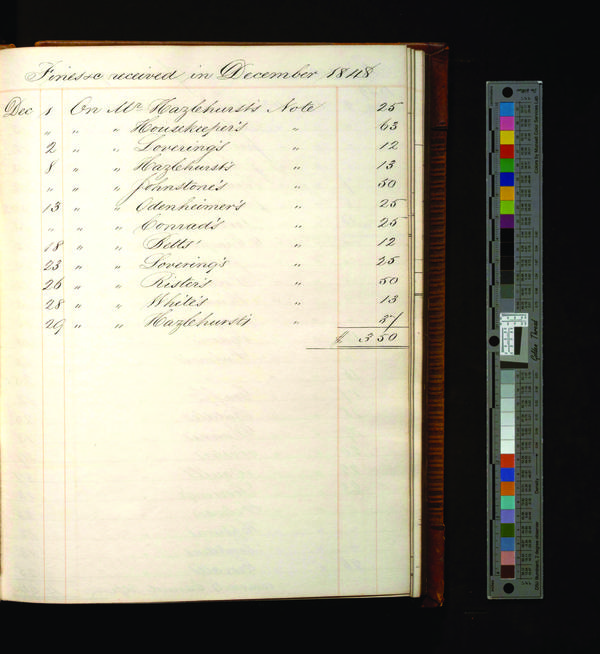 Fines &c received in December 1848
Dec 1 On Mr. Hazlehurst's Note 25
" " " Housekeeper's " 63
2 " " Lovering's " 12
8 " " Hazlehurst's " 13
" " " Johnstone's " 50
13 " " Odenheimer's " 25
" " " Conrad's " 25
18 " " Betts' " 12
23 " " Lovering's " 25
26 " " Rister's " 50
28 " " White's " 13
29 " " Hazlehurst's " 37
$ 3 50